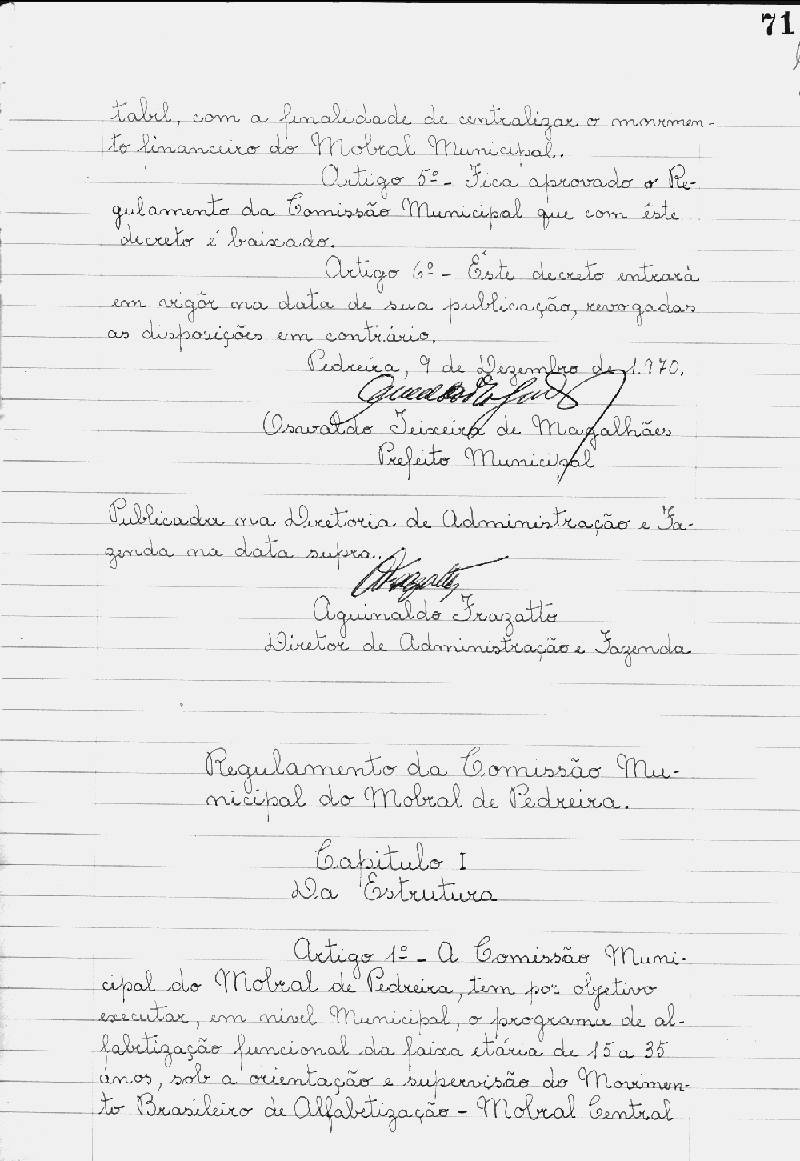 71
tabil, com a finalidade de centralizar o movimen-
to financeiro do Mobral Municipal.
Artigo 5º - Fica aprovado o Re-
gulamento da Comissão Municipal que com êste
decreto é baixado.
Artigo 6º - Êste decreto entrará
em vigôr na data de sua publicação, revogadas
as disposições em contrário.
Pedreira, 9 de Dezembro de 1.970.
Oswaldo Teixeira de Magalhães
Prefeito Municipal
Publicada na Diretoria de Administração e Fa-
zenda na data supra.
Aguinaldo Frazatto
Diretor de Administração e Fazenda
Regulamento da Comissão Mu-
nicipal do Mobral de Pedreira.
Capitulo I
Da Estrutura
Artigo 1º - A Comissão Muni-
cipal do Mobral de Pedreira, tem por objetivo
executar, em nivel Municipal, o programa de al-
fabetização funcional da faixa etária de 15 a 35
anos, sob a orientação e supervisão do Movimen-
to Brasileiro de Alfabetização - Mobral Central